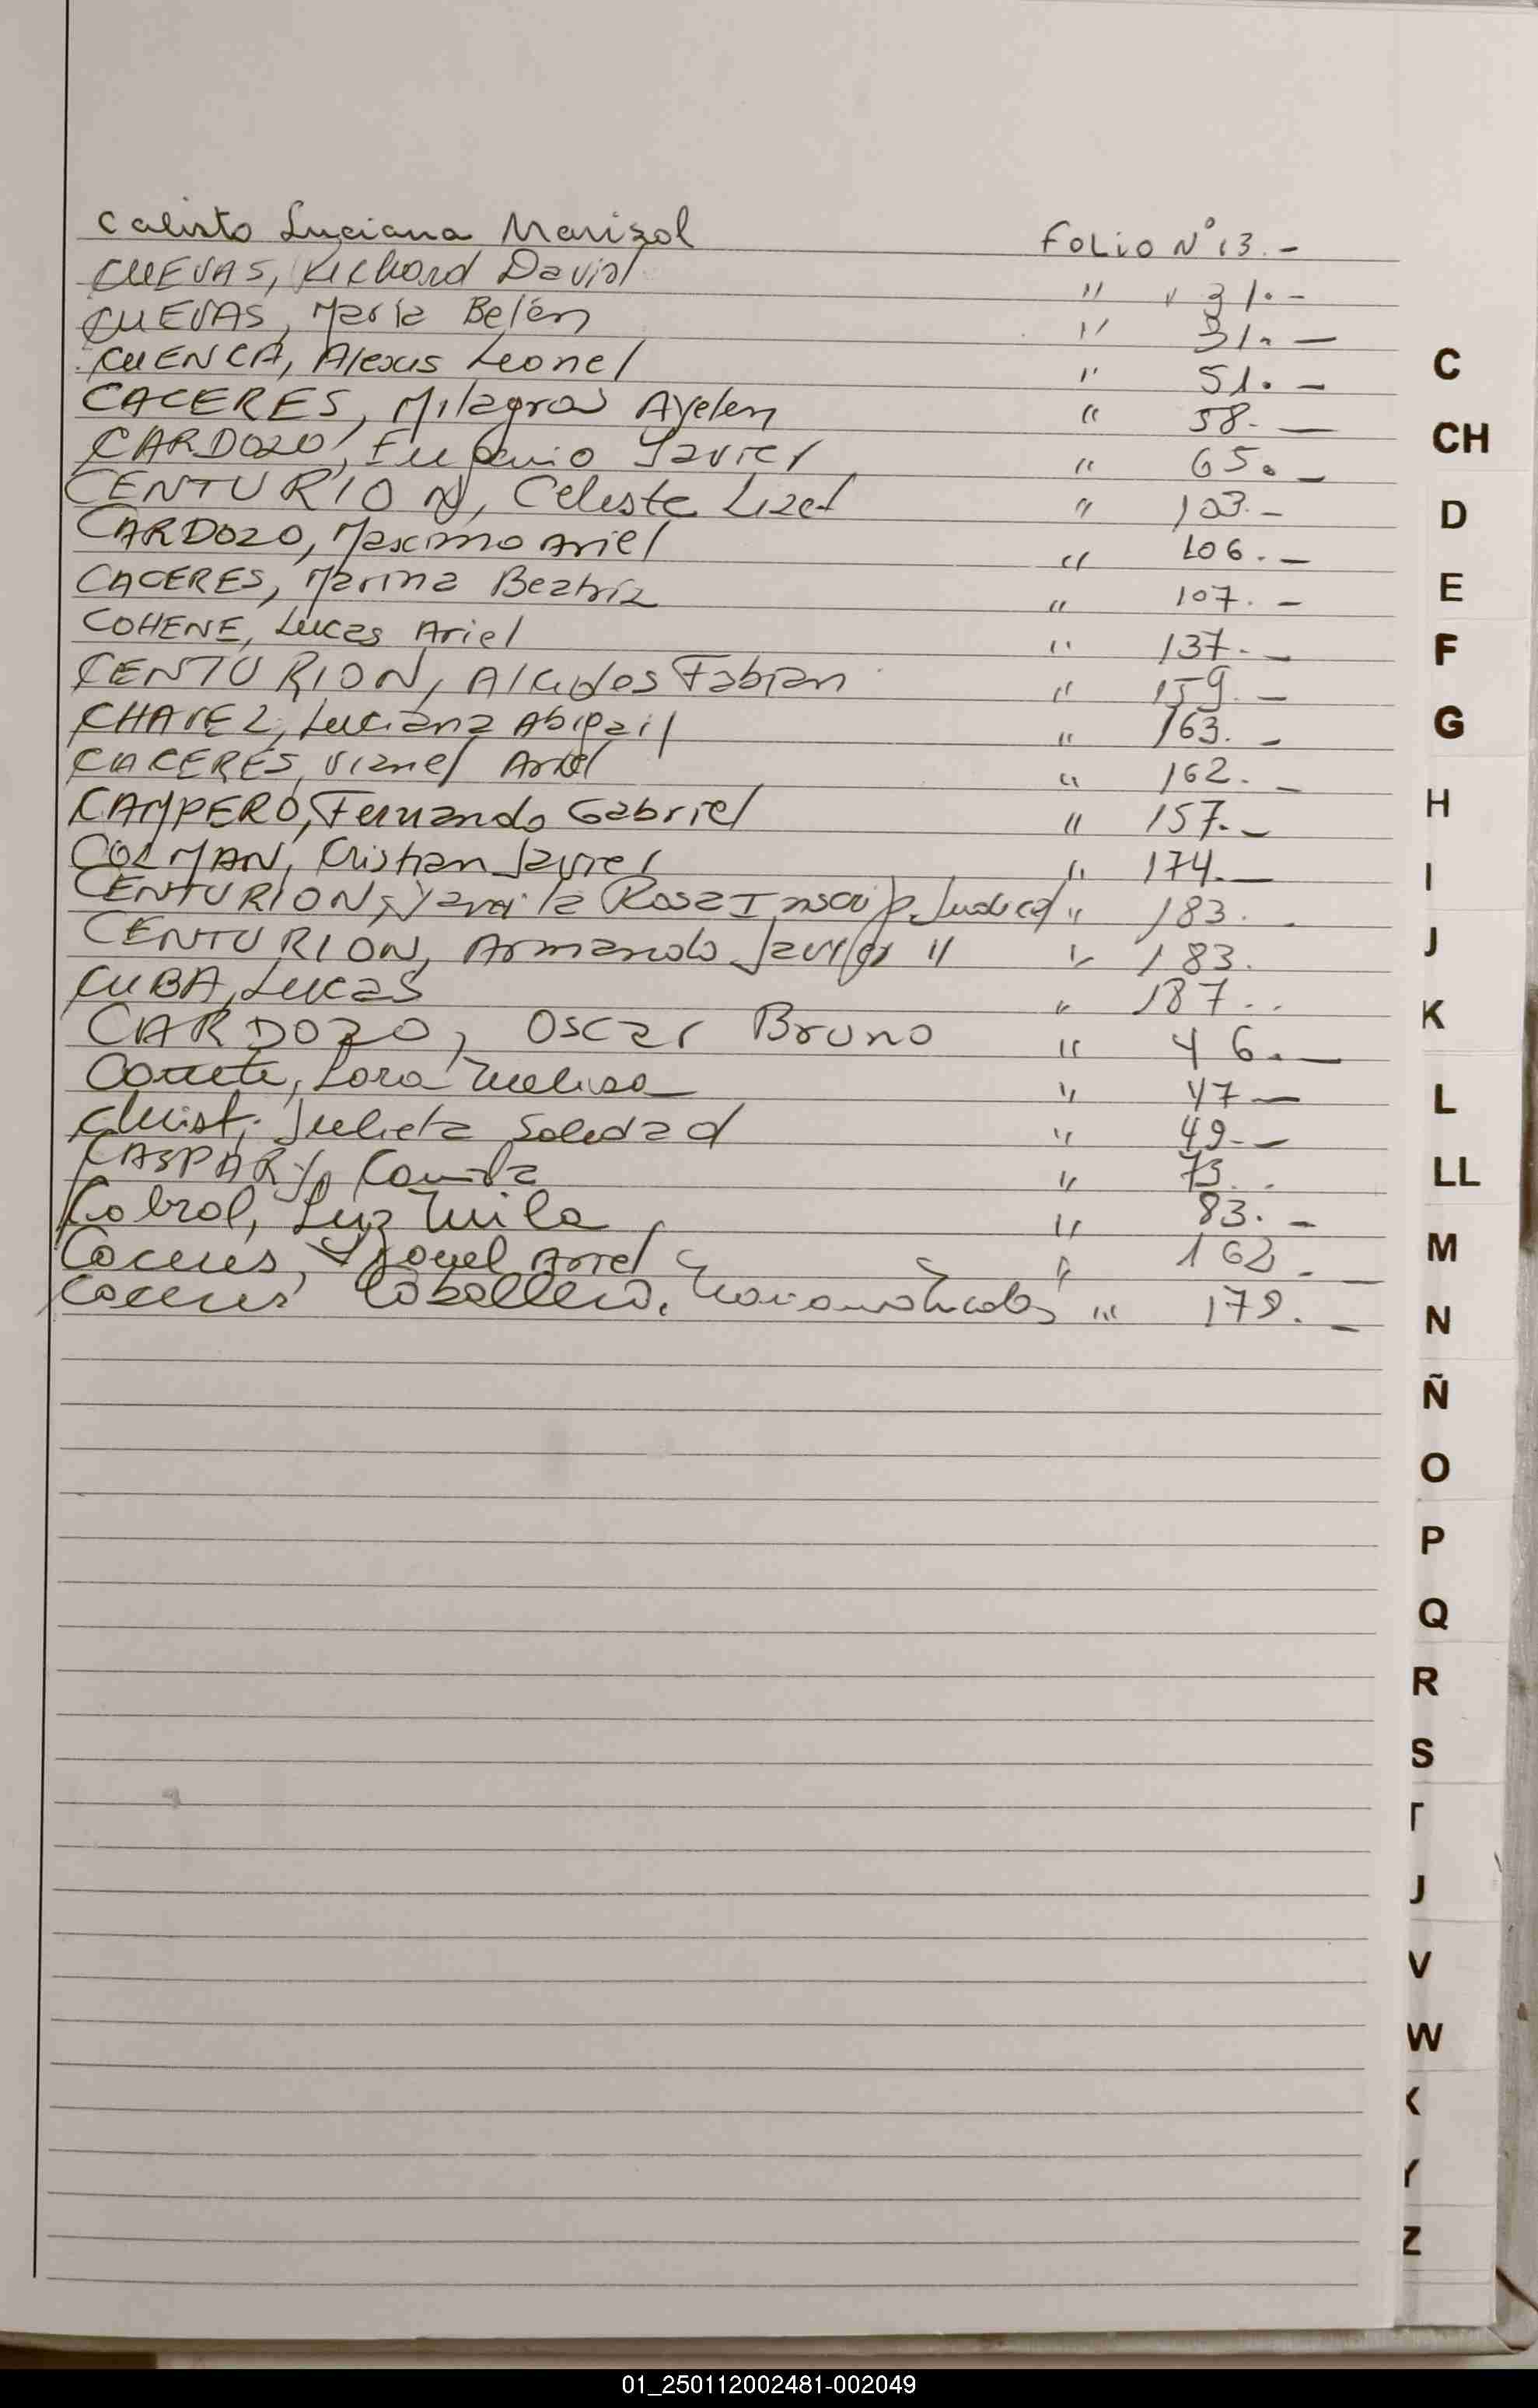 Calisto Luciana Marisol Folio N° 13.-
CUEVAS, Richard David " " 31.-
CUEVAS, María Belén " 31.-
CUENCA, Alexis Leonel " 51.-
CACERES, Milagros Ayelen " 58.-
CARDOZO, Eugenio Javier " 65.-
CENTURION, Celeste Lizet " 103.-
CARDOZO, Maximo Ariel " 106.-
CACERES, Marina Beatriz " 107.-
COHENE, Lucas Ariel " 137.-
CENTURION, Alcides Fabian " 159.-
CHAVEZ, Luciana Abigail " 163.-
CACERES, Ariel " 162.-
CAMPERO, Fernando Gabriel " 157.-
COLMAN, Cristian Javier " 174.-
CENTURION, Rosa Inscrip. Judicial " 183.
CENTURION, Armando Javier " " 183.
CUBA, Lucas " 187..
CARDOZO, Oscar Bruno " 46.-
Melisa " 47-
Christ, Julieta Soledad " 49.-
CASPARY, Camila " 73..
Cabral, Luz Mila " 83.-
Caceres, Ariel " 162.-
Caceres Caballero, " 179.-
C
CH
D
E
F
G
H
I
J
K
L
LL
M
N
Ñ
O
P
Q
R
S
V
W
Z
01_250112002481-002049